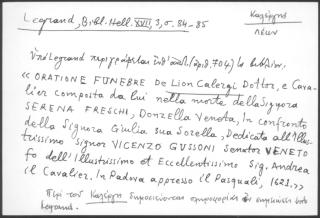 Legrand, Bibl. Hell. XVII, 3, σ. 84-85
Καλέργης
Λέων
Ὑπὸ Legrand περιγράφεται ὑπ' ἀριθ. 704) τὸ βιβλίον.
« ORATIONE FUNEBRE De Lion Calergi Dottor, e Cava-
lier composta da lui nella morte della Signora
SERENA FRESCHI, Donzella Veneta, In confronto
della Signora Giulia sua Sorella, Dedicata all'Illus-
trissimo signor VICENZO GUSSONI Senator VENETO
fo dell'Illustrissimo et Eccellentissimo Sig. Andrea
il Cavalier. In Padova appresso il Pasquali, 1621.»
Περὶ τοῦ Καλέργη δημοσιεύονται
Legrand.